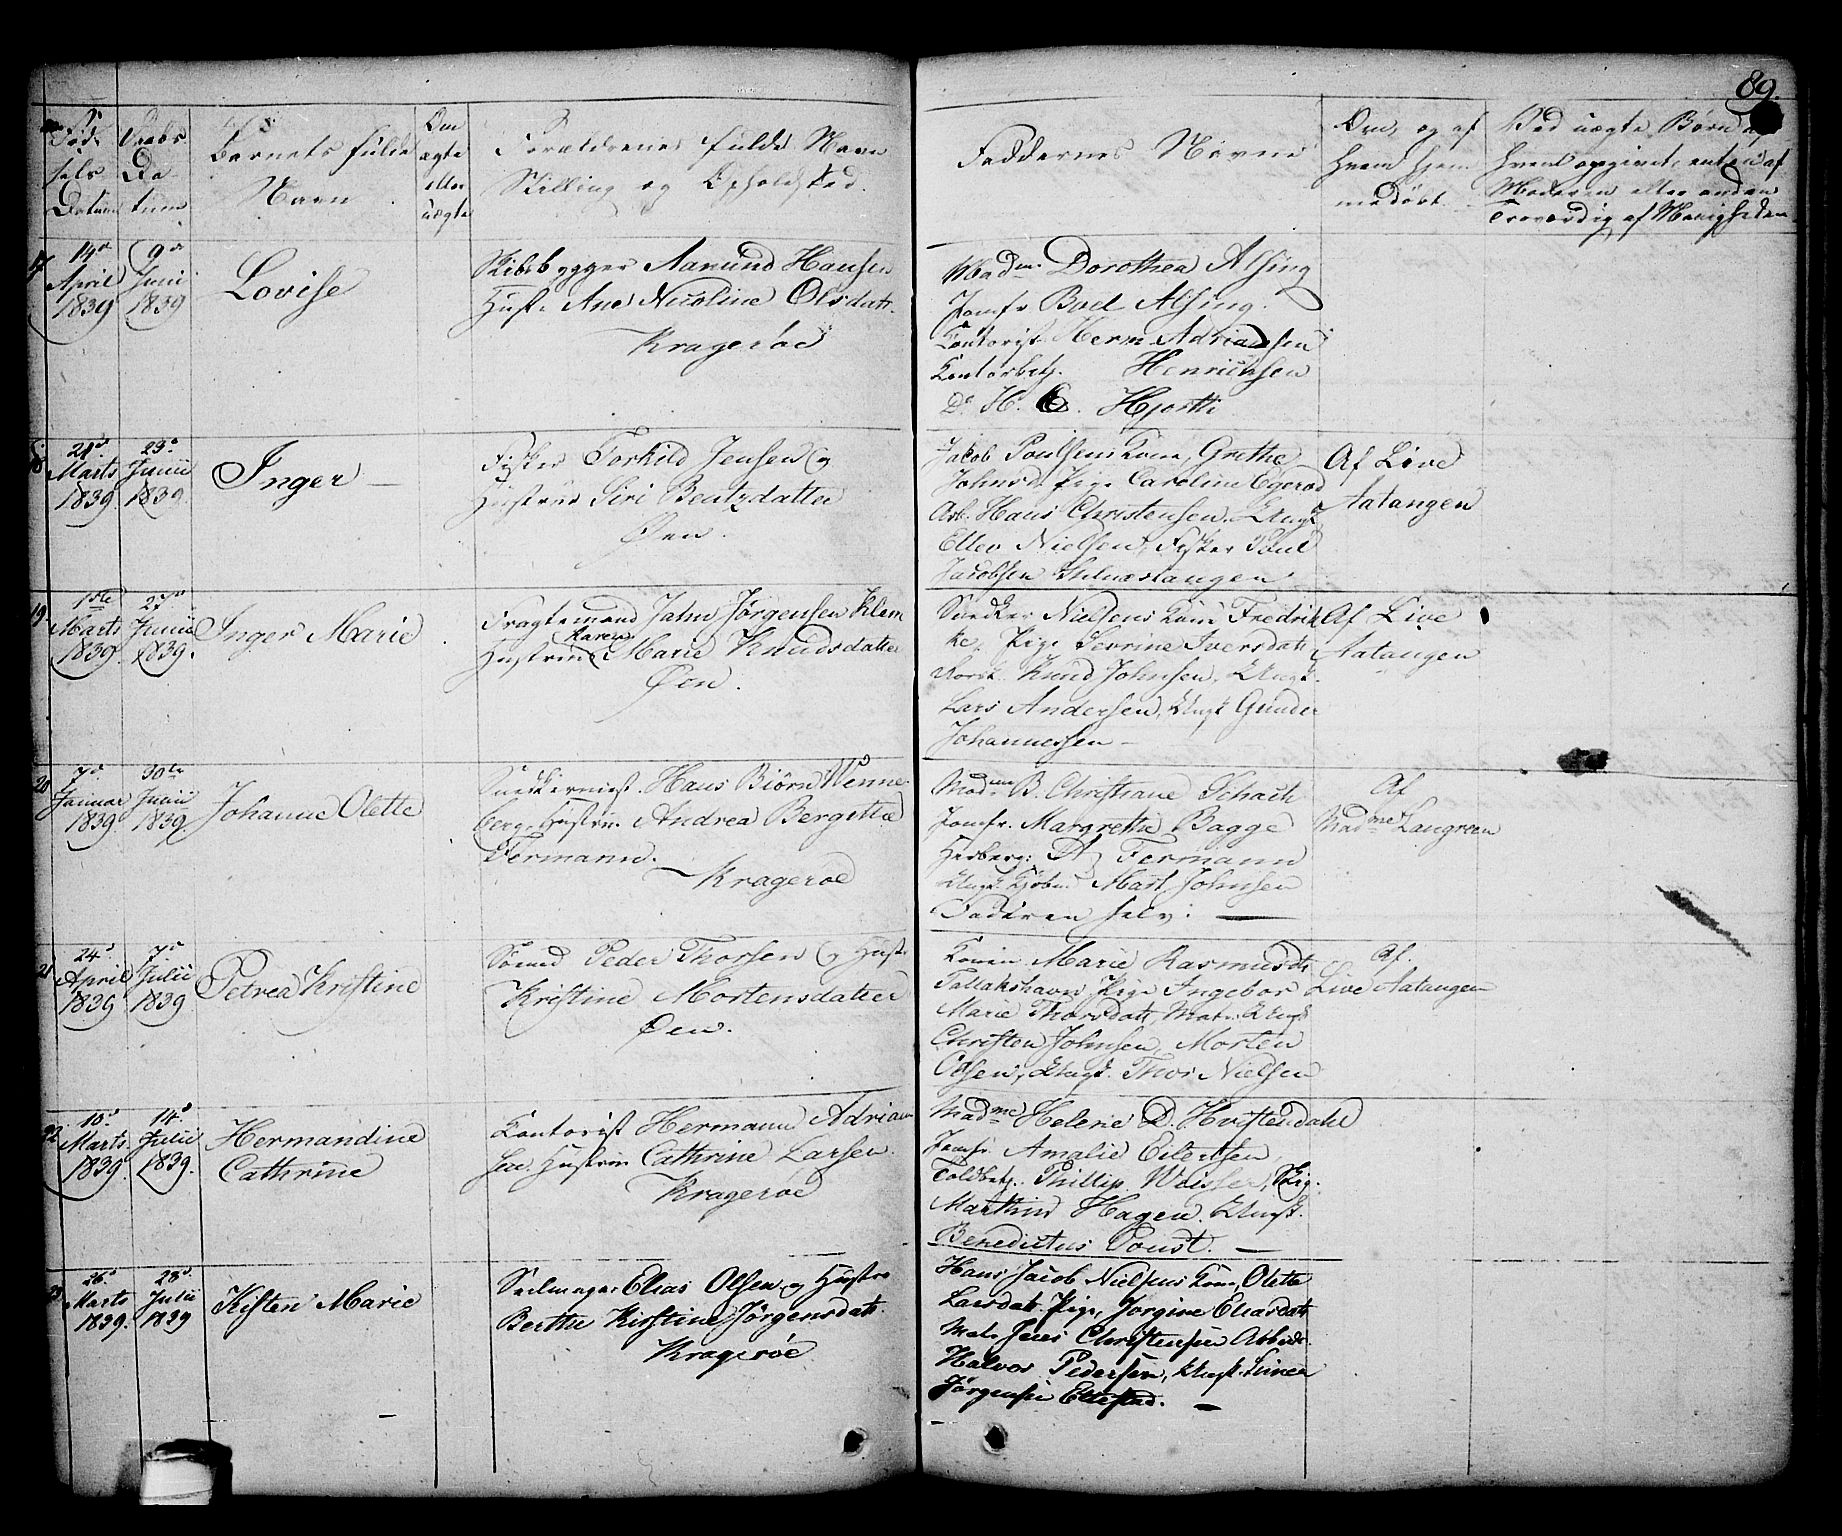 89.
Fødsels Datum
Daabs Datum
Barnets fulde Navn
Om ægte eller uægte
Forældrenes fulde Navn
Stilling og Opholdsted.
Faddernes Navne
Om, og af hvem hjemmedøbt.
Ved uægte Børn af
hvem opgivet, enten af
Moderen eller anden
Troværdig af Menigheden
17
14de April 1839
9de Juni 1839
Lovise
Skibsbygger Aamund Hansen
Hust: Ane Nicoline Olsdatr.
Kragerøe
Madm. Dorothea Alsing
Jomfr Boel Alsing.
Contorist Herm. Adriansen
Kontorbetj. Henrichsen
Do H. C. Hjorth
18
21d. Marts 1839.
23d Junii 1839.
Inger —
Fisker Torkild Jensen og
Hustrue Siri Bentzdatter
Øen.
Jacob Poulsens Kone, Grethe
Johnsd. Pige Caroline Egerod
Arb. Hans Christensen, Ungk.
Ellev Nielsen, Fisker Poul
Jacobsen
Af Live
Aatangen
19
1ste Marts 1839.
27d Junii 1839.
Inger Marie
Fragtemand Jahn Jørgensen Klem
Hustrue Karen Marie Knudsdatter
Øen.
Snedker Nielsens Kone Fredrik
ke, Pige Sevrine Iversdatr
Knud Johnsen, Ungk.
Lars Andersen, Ungk Gunder
Johannessen —
Af Live
Aatangen
20
7d Januar 1839.
30te Junii 1839.
Johanne Olette
Snedkermest. Hans Biørn Wenne
berg, Hustrue Andrea Bergitte
Fermann.
Kragerøe
Madm B. Christiane Schach
Jomfr. Margrethe Bagge
Herberg: A Fermann
Ungk. Kjøbm Mart. Johnsen
Faderen selv: —
Af
Madme Langreen
21
24d April 1839
7d Julii 1839
Petrea Kristine
Sømd Peder Thorsen og Hust.
Kristine Mortensdatter
Øen.
Konen Marie Rasmusdtr
Tallakshavn Pige Ingebor
Marie Thorsdatr, Matr. Ungk
Christen Johnsen, Morten
Olsen, Ungk. Thor Nielsen
Af.
Live Aatangen
22
10d Marts 1839
14d Julii 1839.
Hermandine
Cathrine
Contorist Hermann Adrian
sen. Hustrue Cathrine Larsen.
Kragerøe
Madme Helene D. Hvistendahl
Jomfr. Amalie Eilertsen
Toldbetj. Phillip Weisser, Skip.
Marthin Hagen. Ungk.
Benedictus Poust. —
23
26d Marts 1839.
28d. Julii 1839
Kisten Marie
Seilmager Elias Olsen og Hustru
Berthe Kirstine Jørgensdatr.
Kragerøe
Hans Jacob Nielsens Kone, Olette
Larsdatr. Pige, Jorgine Eliasdatr
Mat. Jens Christensen
Halvor Pedersen, Ungk.
Jørgensen Ellestad. —